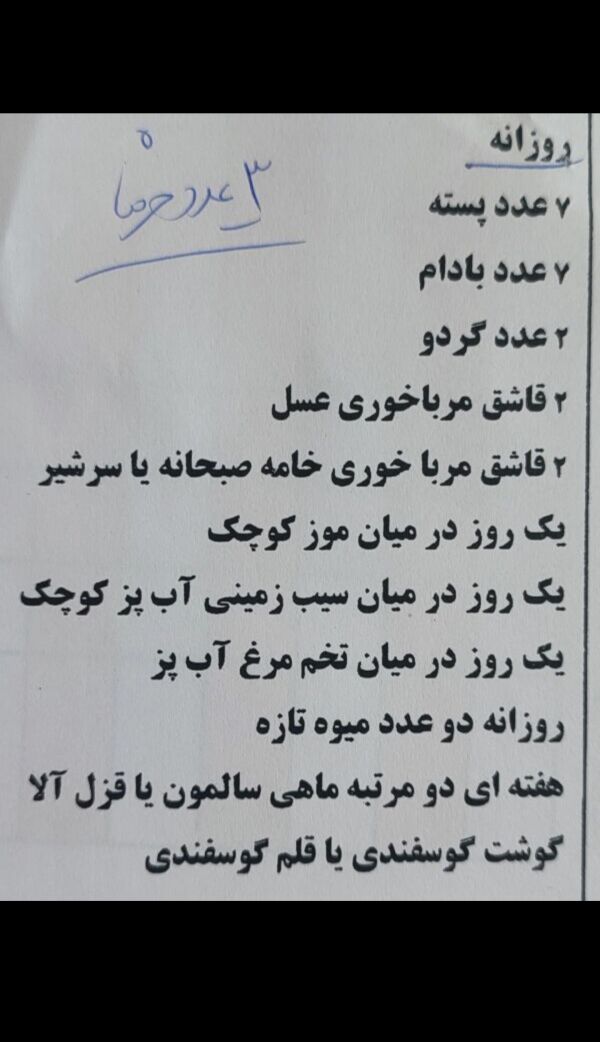 روزانه
۳ عدد خرما
۷ عدد پسته
۷ عدد بادام
۲ عدد گردو
۲ قاشق مرباخوری عسل
۲ قاشق مربا خوری خامه صبحانه یا سرشیر
یک روز در میان موز کوچک
یک روز در میان سیب زمینی آب پز کوچک
یک روز در میان تخم مرغ آب پز
روزانه دو عدد میوه تازه
هفته ای دو مرتبه ماهی سالمون یا قزل آلا
گوشت گوسفندی یا قلم گوسفندی